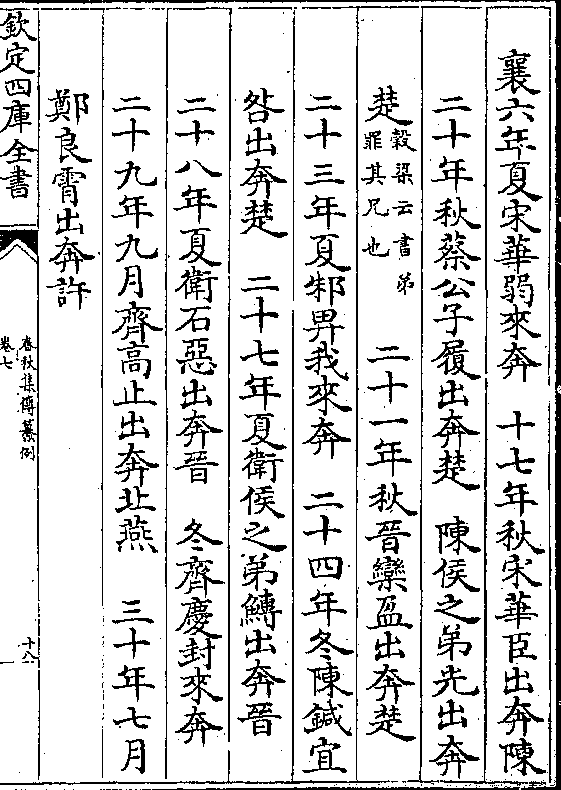 襄六年夏宋華弱來奔　十七年秋宋華臣出奔陳
二十年秋蔡公子履出奔楚　陳侯之弟光出奔
楚穀梁云書弟罪其兄也　二十一年秋晉欒盈出奔楚
二十三年夏邾畀我來奔　二十四年冬陳鍼宜
咎出奔楚　二十七年夏衛侯之弟鱄出奔晉
二十八年夏衛石惡出奔晉　冬齊慶封來奔
二十九年九月齊高止出奔北燕　三十年七月
鄭良霄出奔許
欽定四庫全書
春秋集傳纂例
卷七
十八